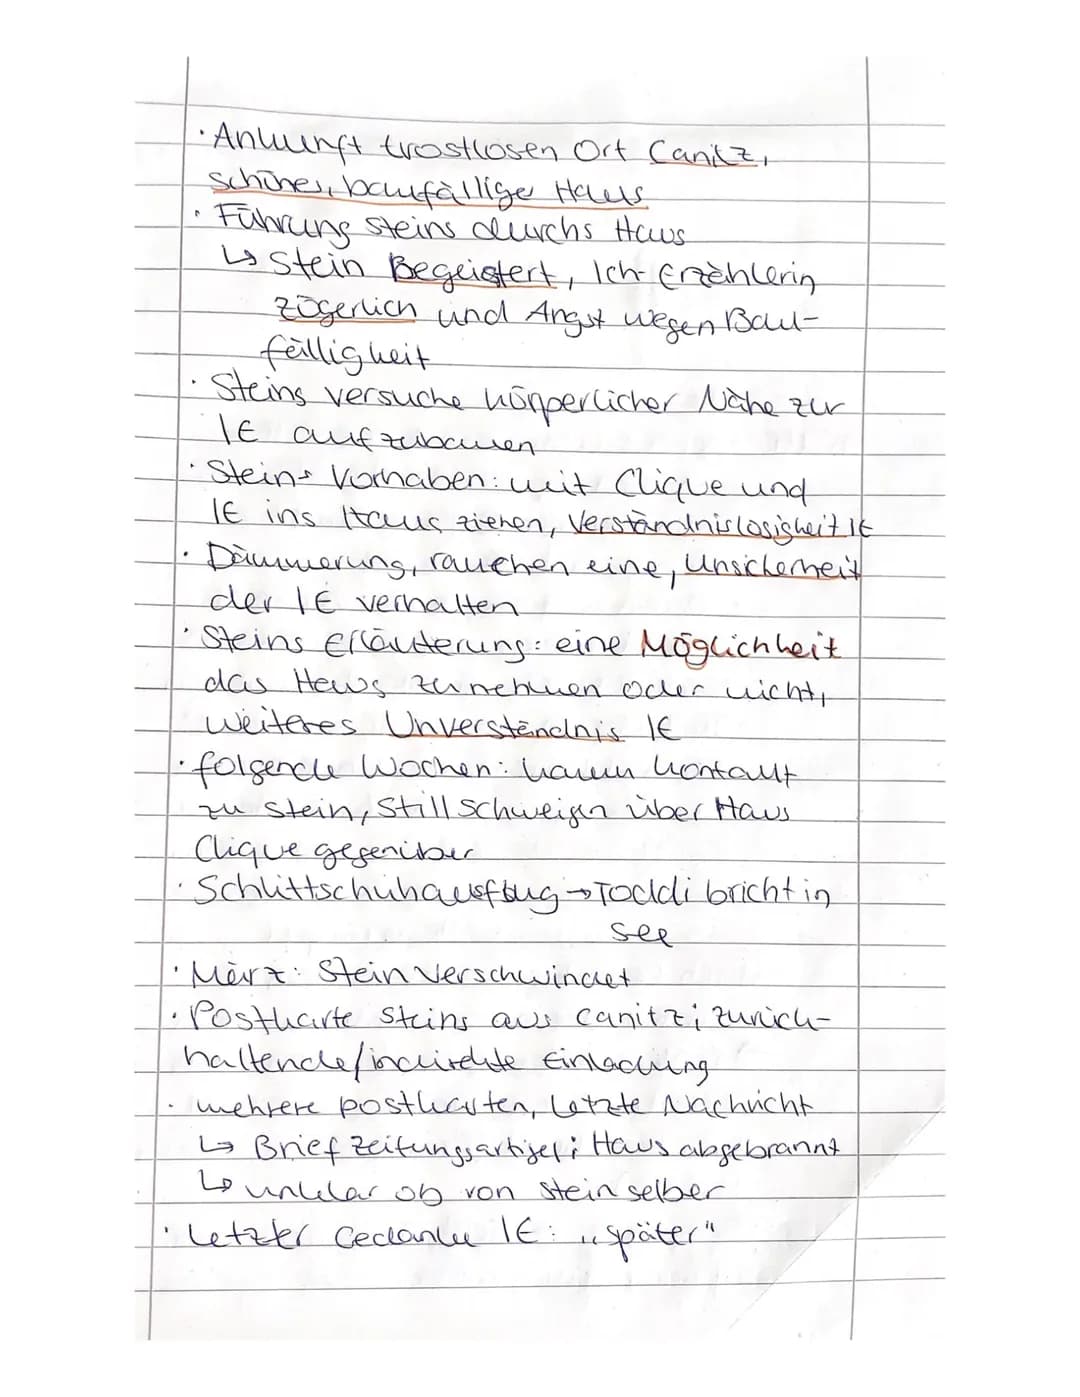 · Ankunft trostlosen Ort Canitz,
schönes, baufällige Haus
· Führung Steins durchs Haus
↳ Stein Begeistert, Ich-Erzählerin
zögerlich und Angst wegen Bau-
fälligkeit
· Steins versuche körperlicher Nähe zur
IE aufzubauen
· Steins Vorhaben: mit Clique und
IE ins Haus ziehen, Verständnislosigkeit IE
· Dämmerung, rauchen eine, Unsicherheit
der IE verhalten
· Steins Erläuterung: eine Möglichkeit
das Haus zu nehmen oder nicht,
weiteres Unverständnis IE
· folgende Wochen: kaum Kontakt
zu Stein, Stillschweigen über Haus
Clique gegenüber
· Schlittschuhausflug → Toddi bricht in
see
· März: Stein verschwindet
· Postkarte Steins aus Canitz; zurück-
haltende/indirekte Einladung
· mehrere postkarten, letzte Nachricht
↳ Brief Zeitungsartikel; Haus abgebrannt
↳ unklar ob von Stein selber
· Letzter Gedanke IE: „später“